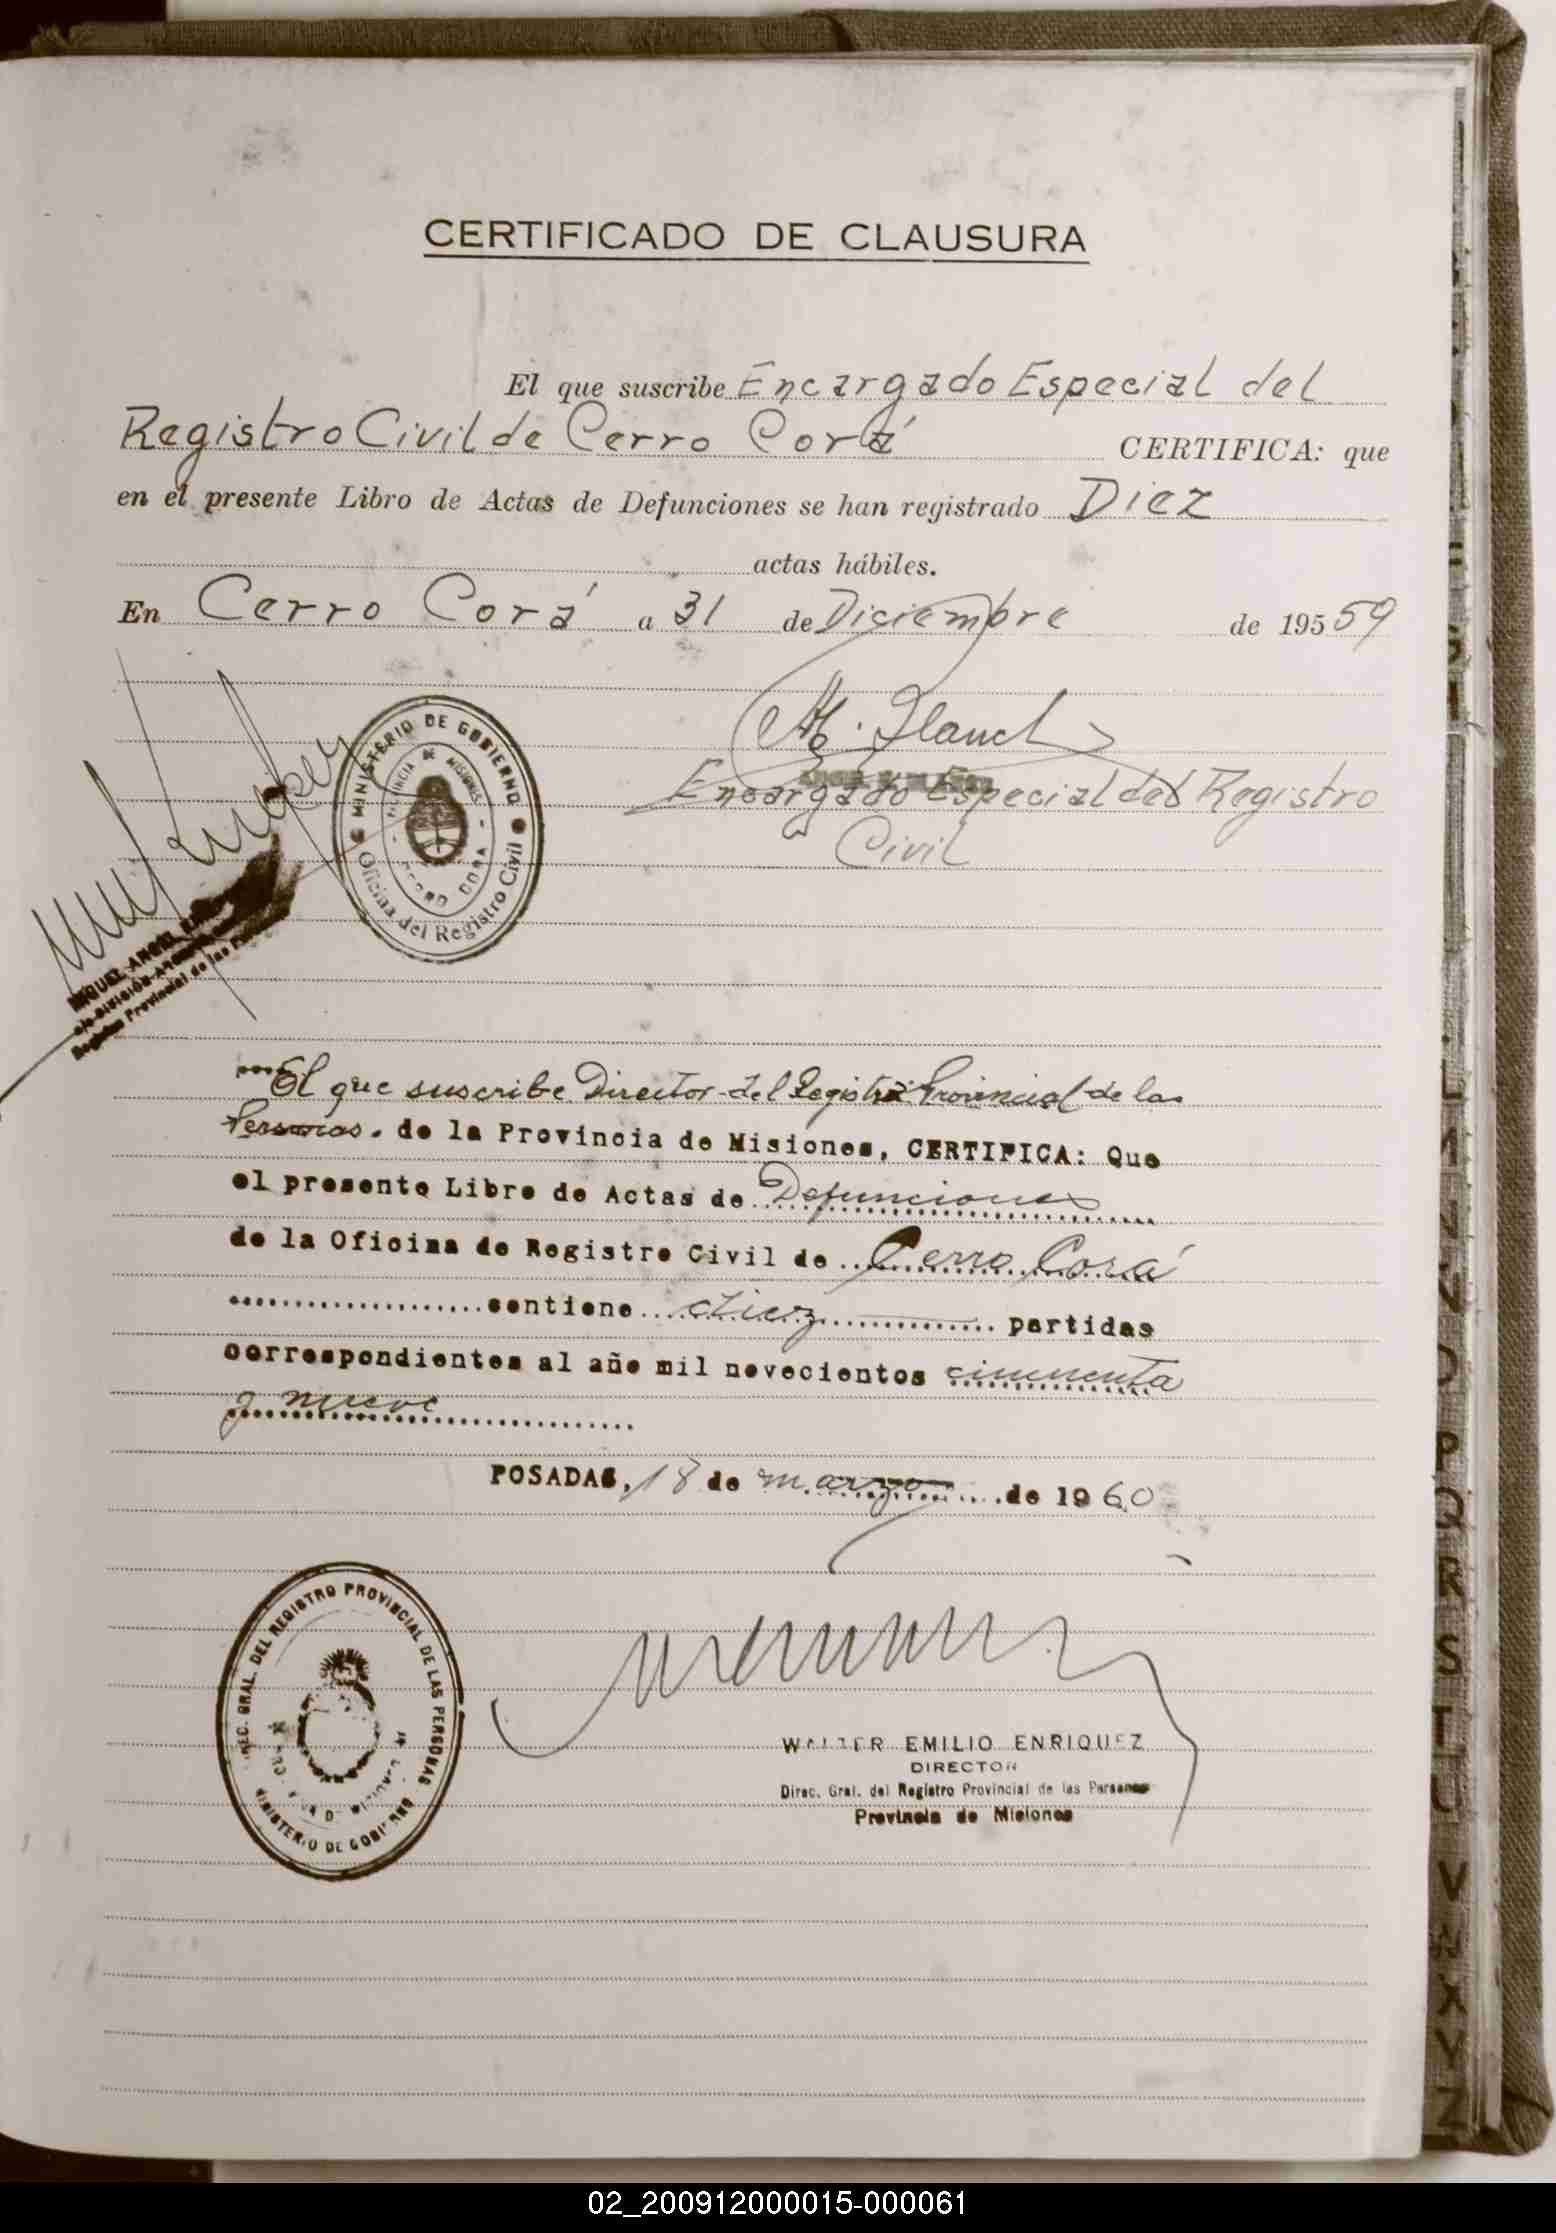 CERTIFICADO DE CLAUSURA
El que suscribe Encargado Especial del
Registro Civil de Cerro Corá CERTIFICA: que
en el presente Libro de Actas de Defunciones se han registrado Diez
actas hábiles.
En Cerro Corá a 31 de Diciembre de 195 59
MINISTERIO DE GOBIERNO
PROVINCIA DE MISIONES
CERRO CORA
Oficina del Registro Civil
Encargado Especial del Registro
Civil
MIGUEL ANGEL
a/c DIVISION
Registro Provincial de las
El que suscribe Director del Registro Provincial de las
Personas. de la Provincia de Misiones, CERTIFICA: Que
el presente Libro de Actas de Defunciones
de la Oficina de Registro Civil de Cerro Corá
contiene diez partidas
correspondientes al año mil novecientos cincuenta
y nueve
POSADAS, 18 de marzo de 1960
DIREC. GRAL. DEL REGISTRO PROVINCIAL DE LAS PERSONAS
MINISTERIO DE GOBIERNO
WALTER EMILIO ENRIQUEZ
DIRECTOR
Direc. Gral. del Registro Provincial de las Personas
Provincia de Misiones
L
M
N
O
P
Q
R
S
T
U
V
W
X
Y
Z
02_200912000015-000061